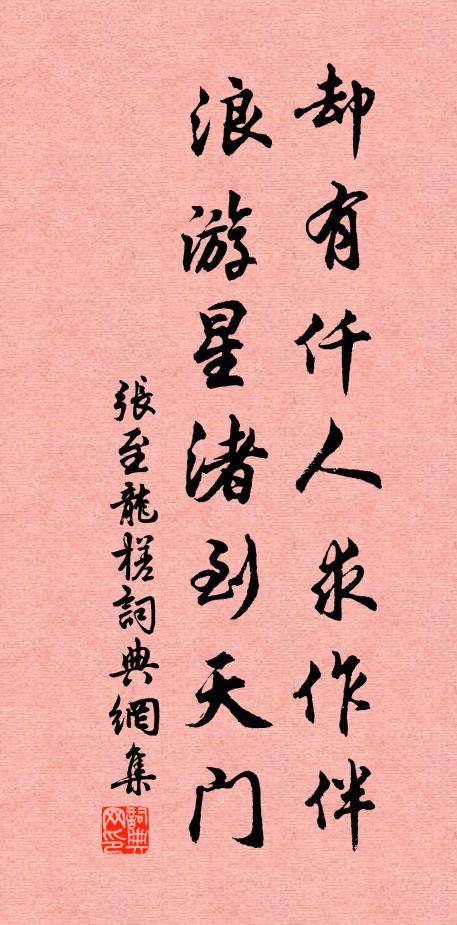 却有仟人求作伴
浪游星渚到天门
張至龍槎詞典網集
詞典网印